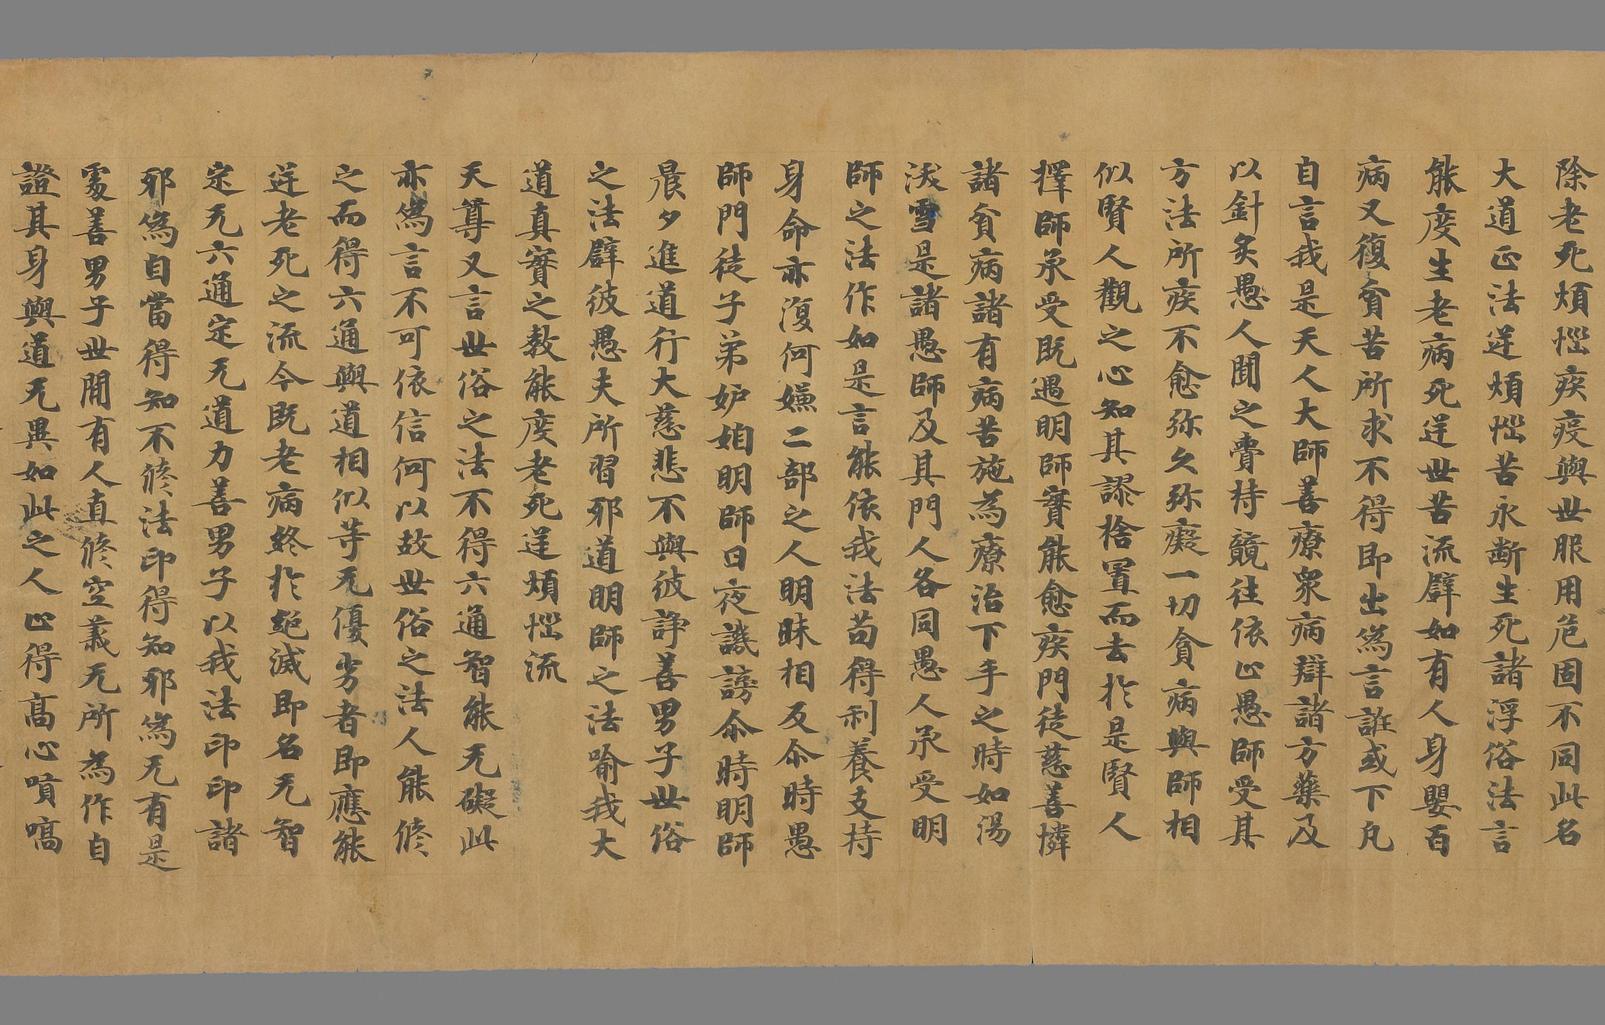 除老死煩惱疾疫與世服用危固不同此名
大道正法逆煩惱苦永斷生死諸浮俗法言
能度生老病死逆世苦流辟如有人身嬰百
病又復貧苦所求不得即出為言誰或下凡
自言我是天人大師善療衆病辯諸方藥及
以針灸愚人聞之賷持競往依止愚師受其
方法所疾不愈弥久弥癡一切貧病與師相
似賢人觀之心知其謬捨置而去於是賢人
擇師承受既遇明師實能愈疾門徒慈善憐
諸貧病諸有病苦施為療治下手之時如湯
沃雪是諸愚師及其門人各同愚人承受明
師之法作如是言能依我法苟得利養支持
身命亦復何嫌二部之人明昧相及尒時愚
師門徒子弟妒媢明師日夜譏謗尒時明師
晨夕進道行大慈悲不與彼諍善男子世俗
之法辟彼愚夫所習邪道明師之法喻我大
道真實之教能度老死逆煩惱流
天尊又言世俗之法不得六通智能无礙此
亦為言不可依信何以故世俗之法人能修
之而得六通與道相似等无優劣者即應能
逆老死之流今既老病終於絕滅即名无智
定无六通定无道力善男子以我法印印諸
邪為自當得知不修法印得知邪為无有是
處善男子世間有人直修空義无所為作自
證其身與道无異如此之人止得高心噴嗃